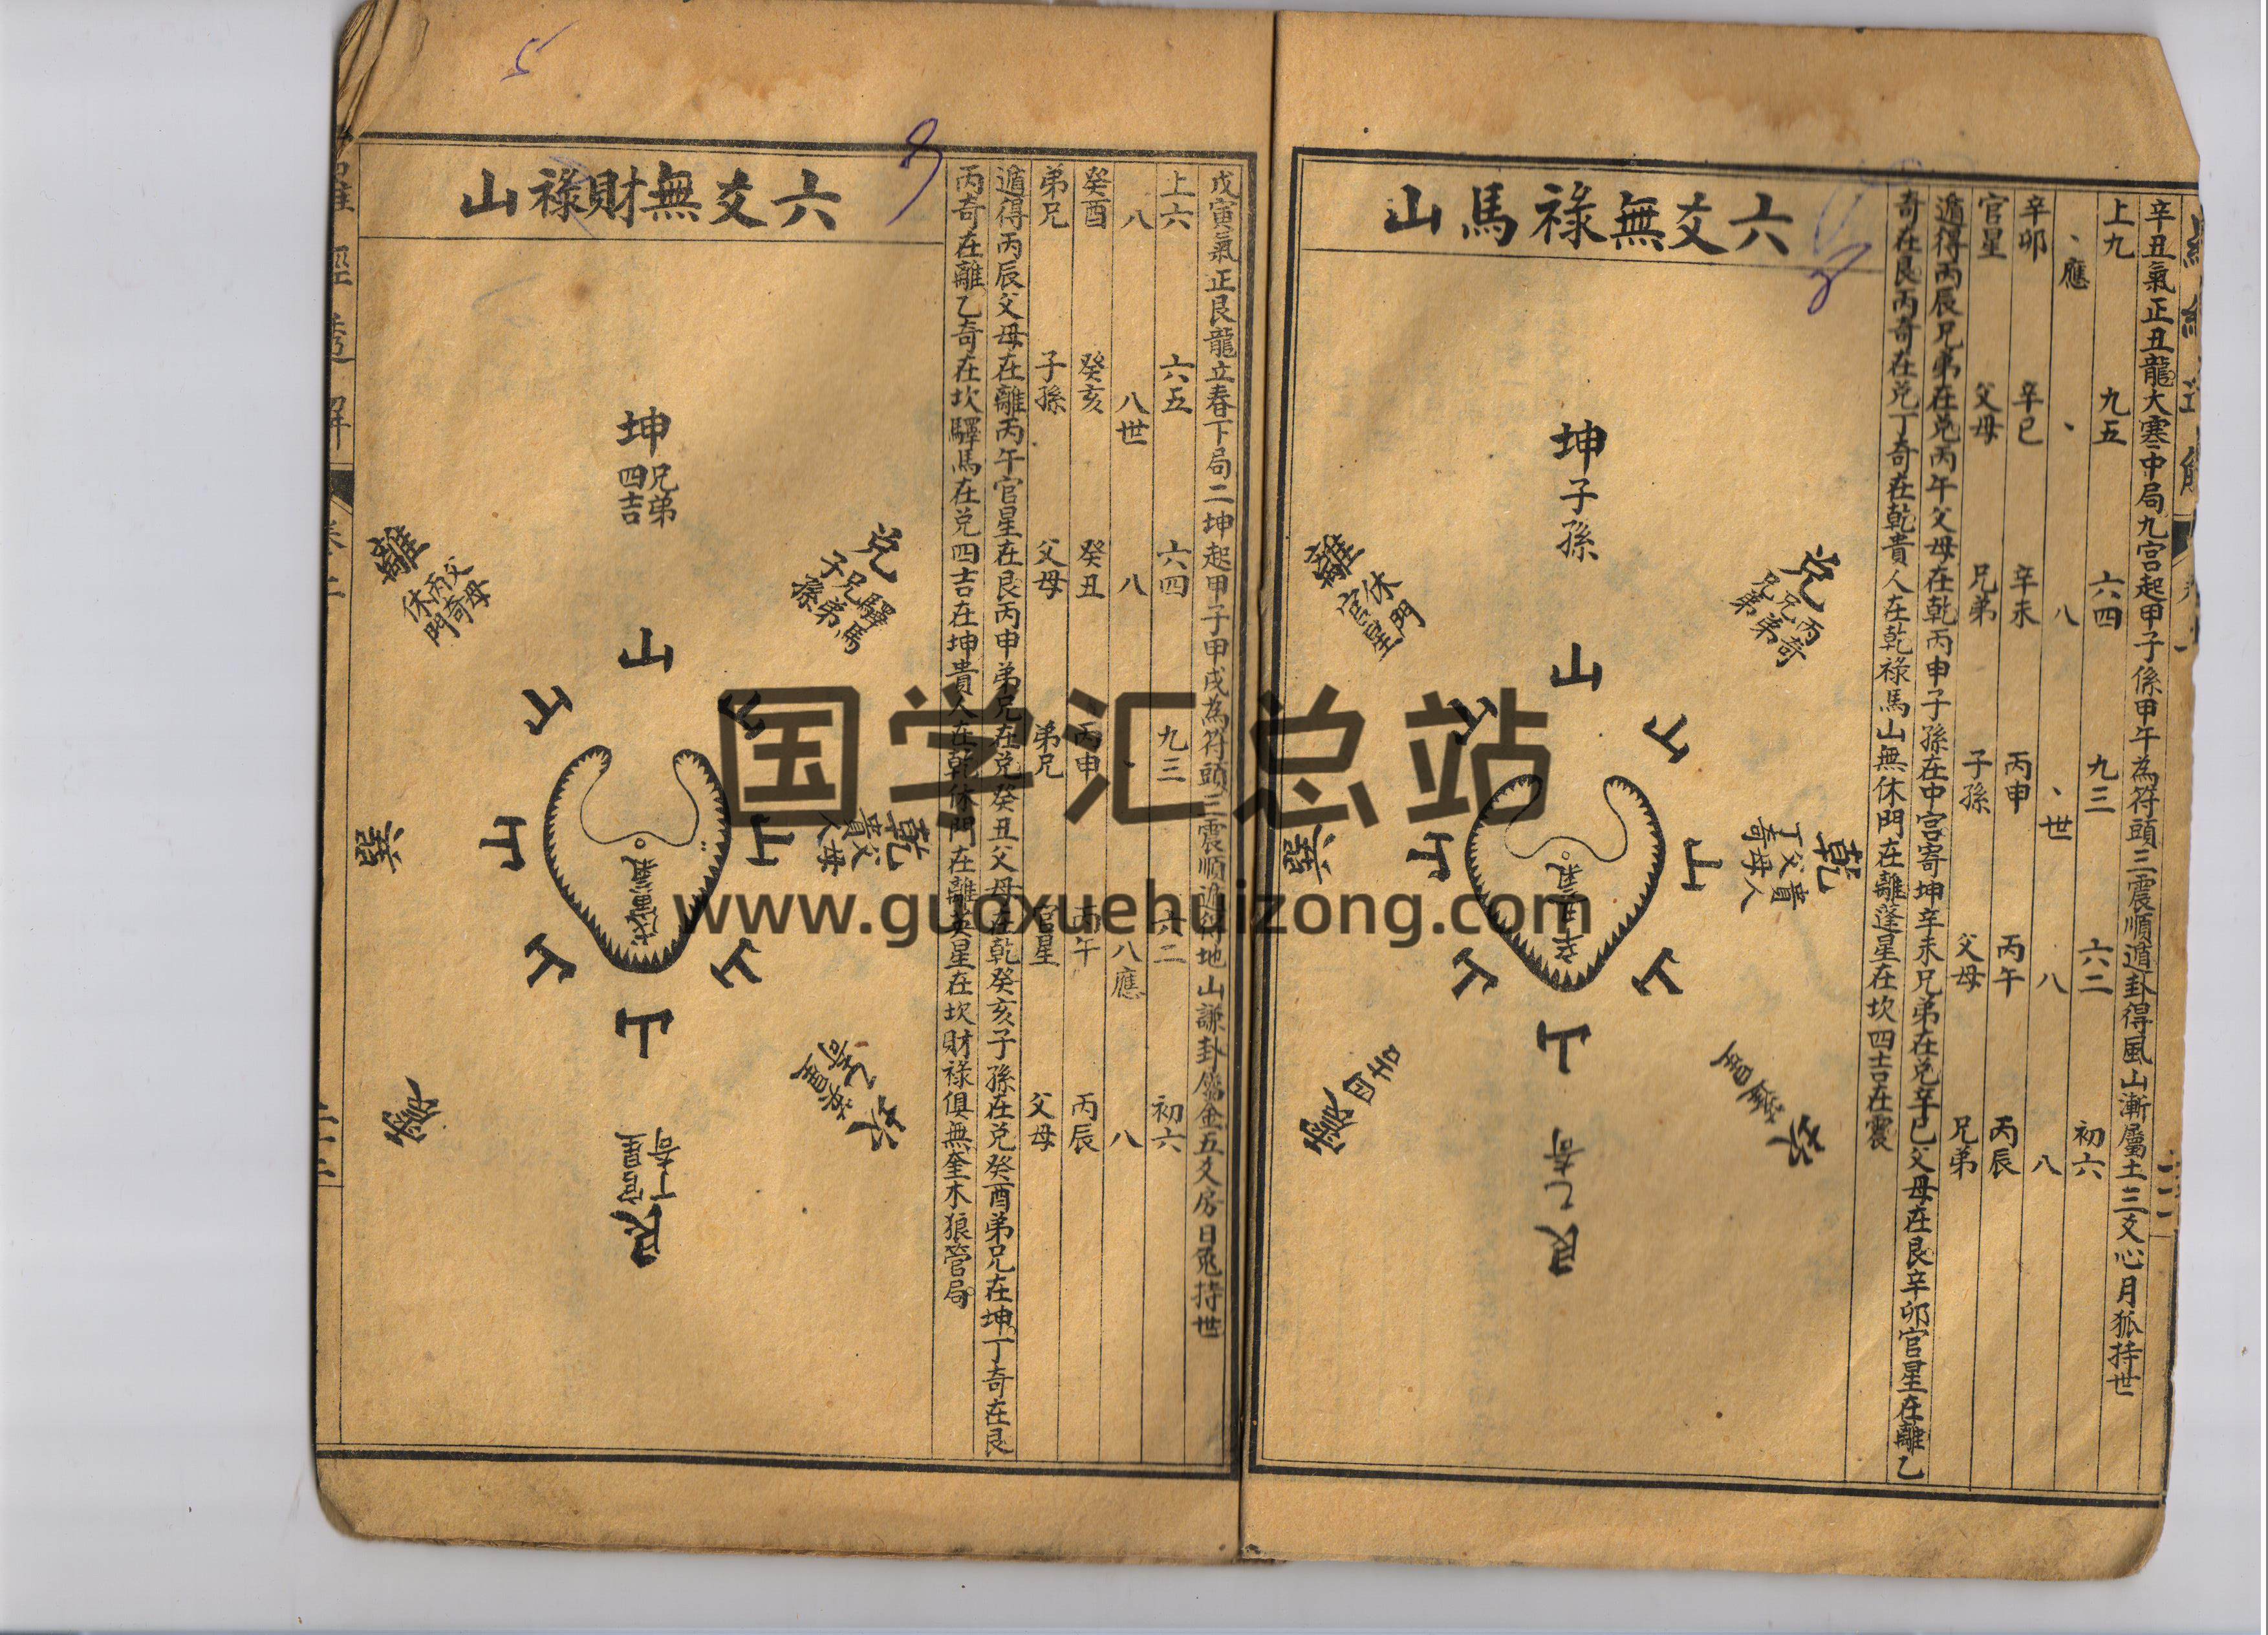 辛丑氣正丑龍大寒中局九宫起甲子係甲午為符頭三震順遁卦得風山漸屬土三爻心月狐持世
上九 九五 六四 九三 六二 初六
、應 、 八 、世 八 八
辛卯 辛巳 辛未 丙申 丙午 丙辰
官星 父母 兄弟 子孫 父母 兄弟
遁得丙辰兄弟在兑丙午父母在乾丙申子孫在中宫寄坤辛未兄弟在兑辛巳父母在艮辛卯官星在離乙
奇在艮丙奇在兑丁奇在乾貴人在乾祿馬山無休門在離蓬星在坎四吉在震
六爻無祿馬山
坤子孫
兑丙奇兄弟
離休門官星
山
山
山
山
山
山
山
山
乾貴人父母丁奇
巽
辛丑氣
震四吉
坎蓬星
艮乙奇
戊寅氣正艮龍立春下局二坤起甲子甲戌為符頭三震順遁得地山謙卦屬金五爻房日兎持世
上六 六五 六四 九三 六二 初六
八 八世 八 、 八應 八
癸酉 癸亥 癸丑 丙申 丙午 丙辰
弟兄 子孫 父母 弟兄 官星 父母
遁得丙辰父母在離丙午官星在艮丙申弟兄在兑癸丑父母在乾癸亥子孫在兑癸酉弟兄在坤丁奇在艮
丙奇在離乙奇在坎驛馬在兑四吉在坤貴人在乾休門在離英星在坎財祿俱無奎木狼管局
六爻無財祿山
坤兄弟四吉
兑驛馬兄弟子孫
離父母丙奇休門
山
山
山
山
山
山
山
山
乾父母貴人
巽
戊寅氣
震
坎乙奇英星
艮丁奇官星
羅經透解
卷二
二十二
国学汇总站
www.guoxuehuizong.com